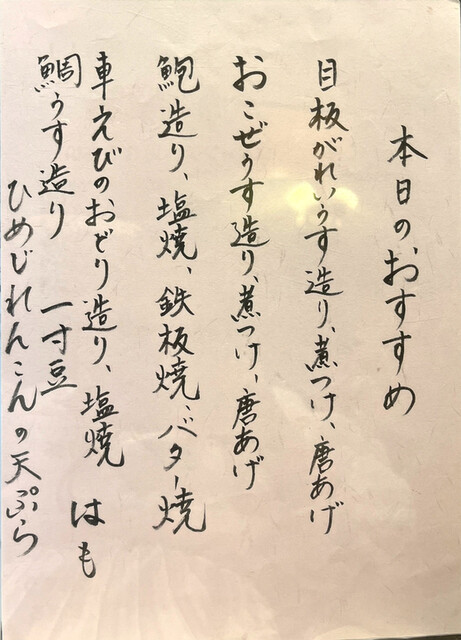 本日のおすすめ
目板がれいうす造り、煮つけ、唐あげ
おこぜうす造り、煮つけ、唐あげ
鮑造り、塩焼、鉄板焼、バター焼
車えびのおどり造り、塩焼 はも
鯛うす造り 一寸豆
ひめじれんこんの天ぷら